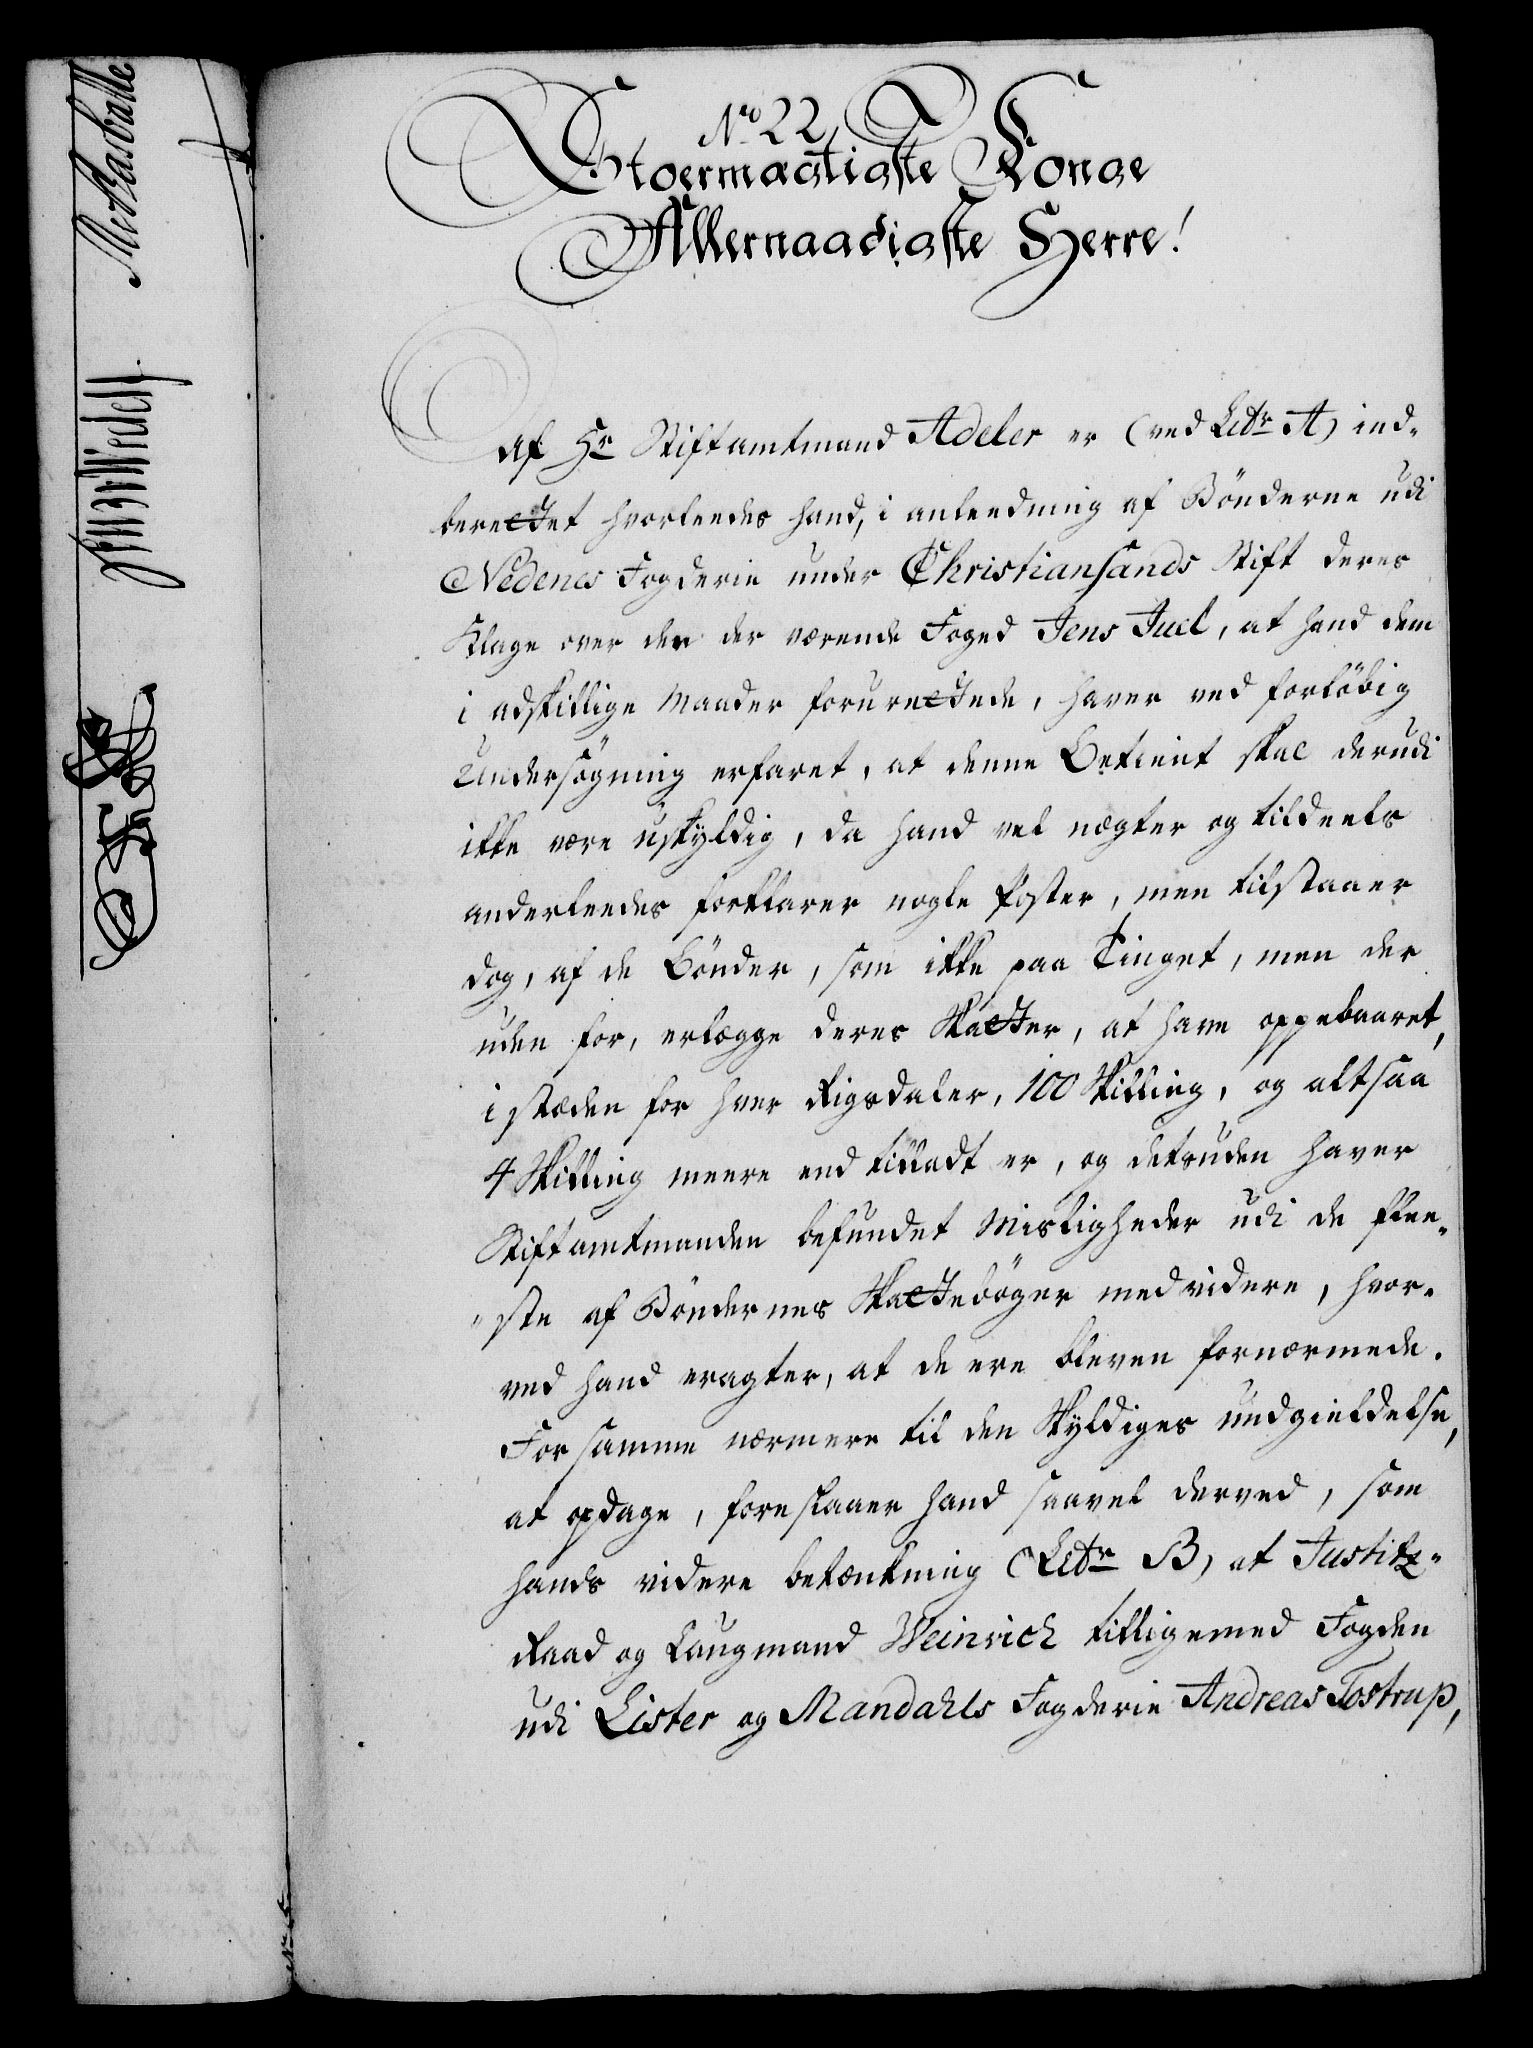 No 22
Stoermægtigste Konge
Allernaadigste Herre!
Af Hr Stiftamtmand Adeler er (ved Litr A) ind-
berettet hvorleedes hand, i anleedning af Bönderne udi
Nedenes Fogderie under Christiansands Stift deres
Klage over den der værende Foged Jens Juel, at hand dem
i adskillige Maader forurettede, haver ved forlöbig
Undersögning erfaret, at denne Betient skal derudi
ikke være uskyldig, da hand vel nægter og tildeels
anderleedes forklarer nogle Poster, men tilstaaer
dog, af de Bönder, som ikke paa Tinget, men der
uden for, erlægge deres Skatter, at have oppebaaret,
i stæden for hver Rigsdaler, 100 Skilling, og altsaa
4 Skilling meere end tilladt er, og desuden haver
Stiftamtmanden befundet Misligheder udi de flee-
ste af Böndernes Skattebøger med videre, hvor-
ved hand eragter, at de ere bleven fornærmede.
For samme nærmere til den Skyldiges undgieldelse,
at opdage, foreslaaer hand saavel derved, som
hands videre betænkning (Litr B) at Justitz-
Raad og Laugmand Weinrich tilligemed Fogden
udi Lister og Mandahls Fogderie Andreas Tostrup,